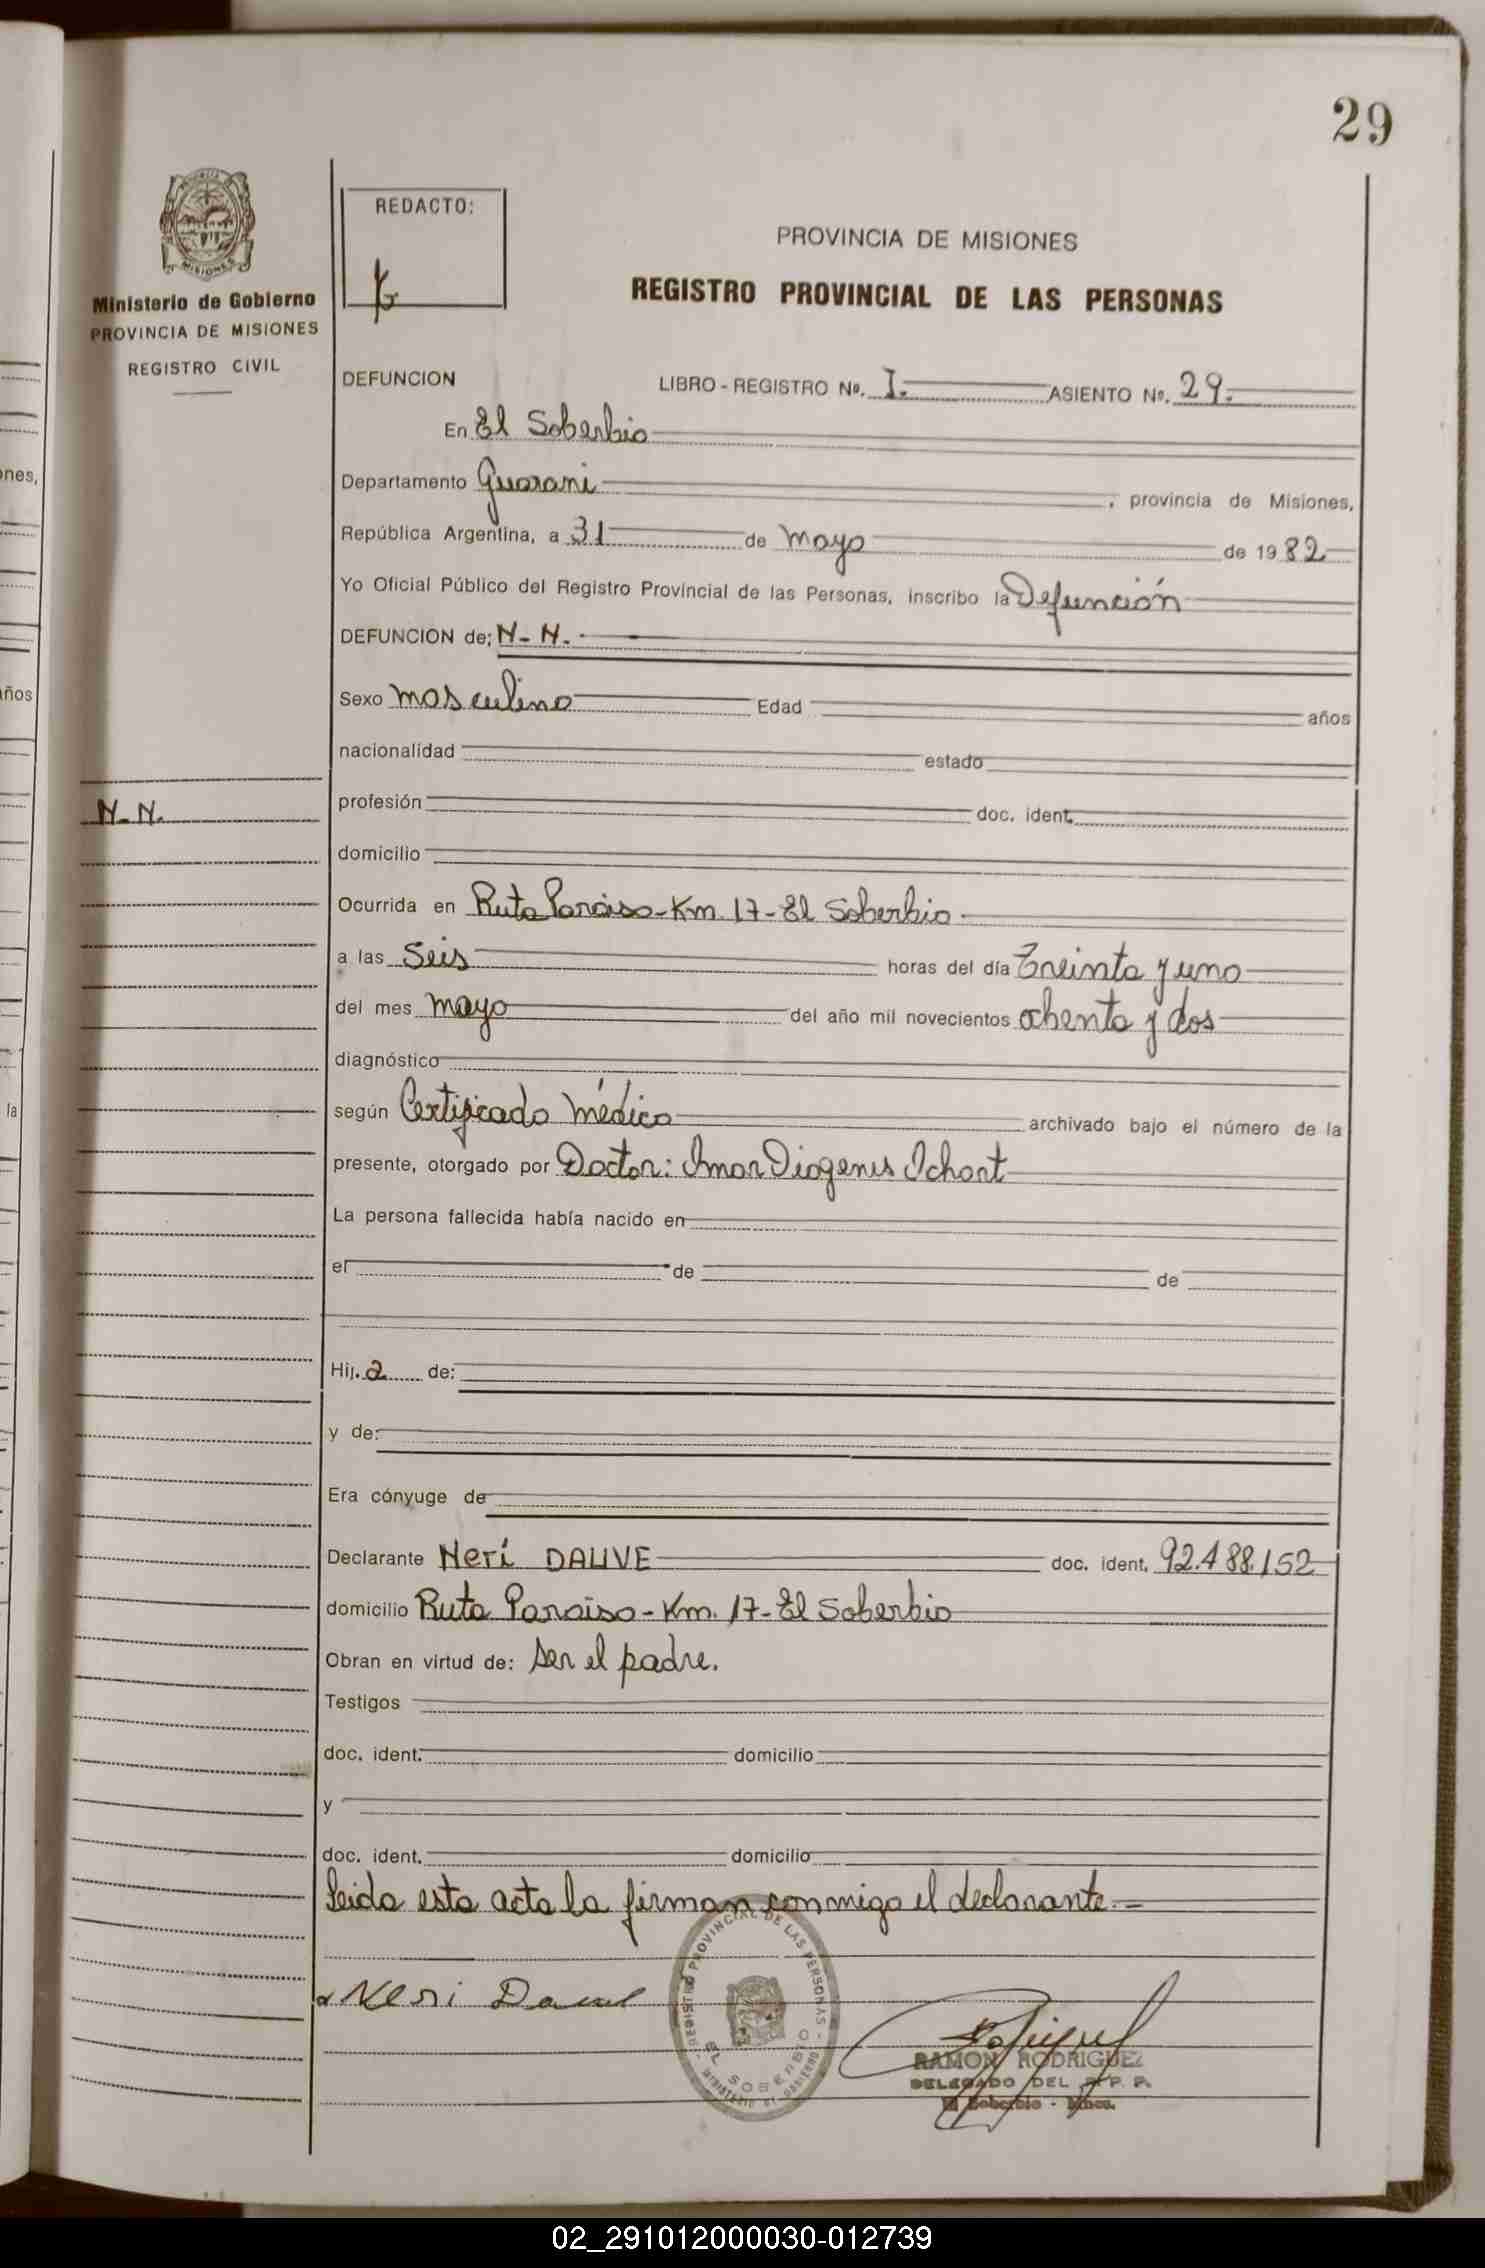 29
REDACTO:
Ministerio de Gobierno
PROVINCIA DE MISIONES
REGISTRO CIVIL
PROVINCIA DE MISIONES
REGISTRO PROVINCIAL DE LAS PERSONAS
DEFUNCION LIBRO - REGISTRO No. I. ASIENTO No. 29.
En El Soberbio
Departamento Guarani , provincia de Misiones,
República Argentina, a 31 de mayo de 1982
Yo Oficial Público del Registro Provincial de las Personas, inscribo la Defunción
DEFUNCION de: N-N.
Sexo masculino Edad años
nacionalidad estado
N-N.
profesión doc. ident.
domicilio
Ocurrida en Ruta Paraiso-Km. 17-El Soberbio
a las Seis horas del día Treinta y uno
del mes mayo del año mil novecientos ochenta y dos
diagnóstico
según Certificado médico archivado bajo el número de la
presente, otorgado por Doctor: Omar Diogenes Ichart
La persona fallecida había nacido en
el de de
Hij. a de:
y de:
Era cónyuge de
Declarante Neri DAUVE doc. ident. 92.488.152
domicilio Ruta Paraiso-Km. 17-El Soberbio
Obran en virtud de: ser el padre.
Testigos
doc. ident. domicilio
y
doc. ident. domicilio
leida esta acta la firman conmigo el declarante.
Neri
REGISTRO PROVINCIAL DE LAS PERSONAS
EL SOBERBIO
MINISTERIO DE GOBIERNO
RAMON RODRIGUEZ
DELEGADO DEL R. P. P.
El Soberbio - Mnes.
ones,
años
la
02_291012000030-012739